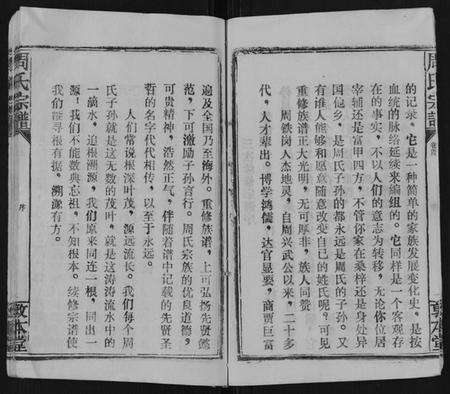 周氏宗譜
卷首
的记录。它是一种简单的家族发展变化史，是按
血统的脉络延续来编组的。它同样是一个客观存
在的事实，不以人们的意志为转移。无论你位居
宰辅还是富甲四方，不管你家在桑梓还是身处异
国他乡，是周氏子孙的都永远是周氏的子孙。又
有谁人能够和愿意随意改变自己的姓氏呢？可见
重修族谱正大光明，无可厚非，族人同赞
周铁岗人杰地灵，自周兴武公以来，二十多
代，人才辈出。博学鸿儒，达官显要，商贾巨富
敦本堂
遍及全国乃至海外。重修族谱，上可弘扬先贤懿
范，下可激励子孙言行。周氏宗族的优良道德，
可贵精神，浩然正气，伴随着谱中记载的先贤圣
哲的名字代代相传，以至于永远。
人们常说根深叶茂，源远流长。我们每个周
氏子孙就是这无数的茂叶，就是这涛涛流水中的
一滴水，追根溯源，我们原来同连一根，同出一
源！我们不能数典忘祖，不知根本。续修宗谱使
我们能寻根有据，溯源有方。
周氏宗譜
序
敦本堂